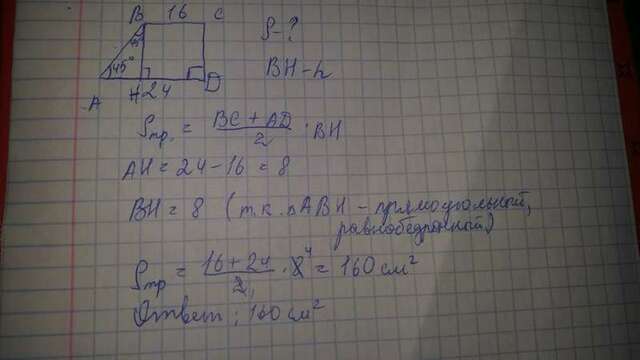 B 16 C
45°
45°
A H 24 D
S-?
BH-h
Sтр. = BC + AD / 2 · BH
AH = 24 - 16 = 8
BH = 8 (т.к. △ABH - прямоугольный,
равнобедренный)
Sтр = 16 + 24 / 2 · 8 4 = 160 см²
Ответ: 160 см²